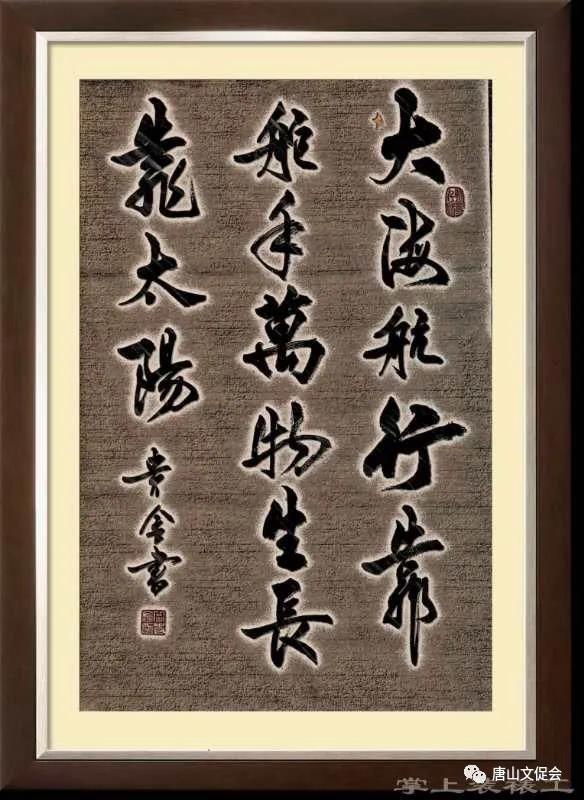 大海航行靠
舵手萬物生長
靠太陽
書
唐山文促会
掌上装裱工